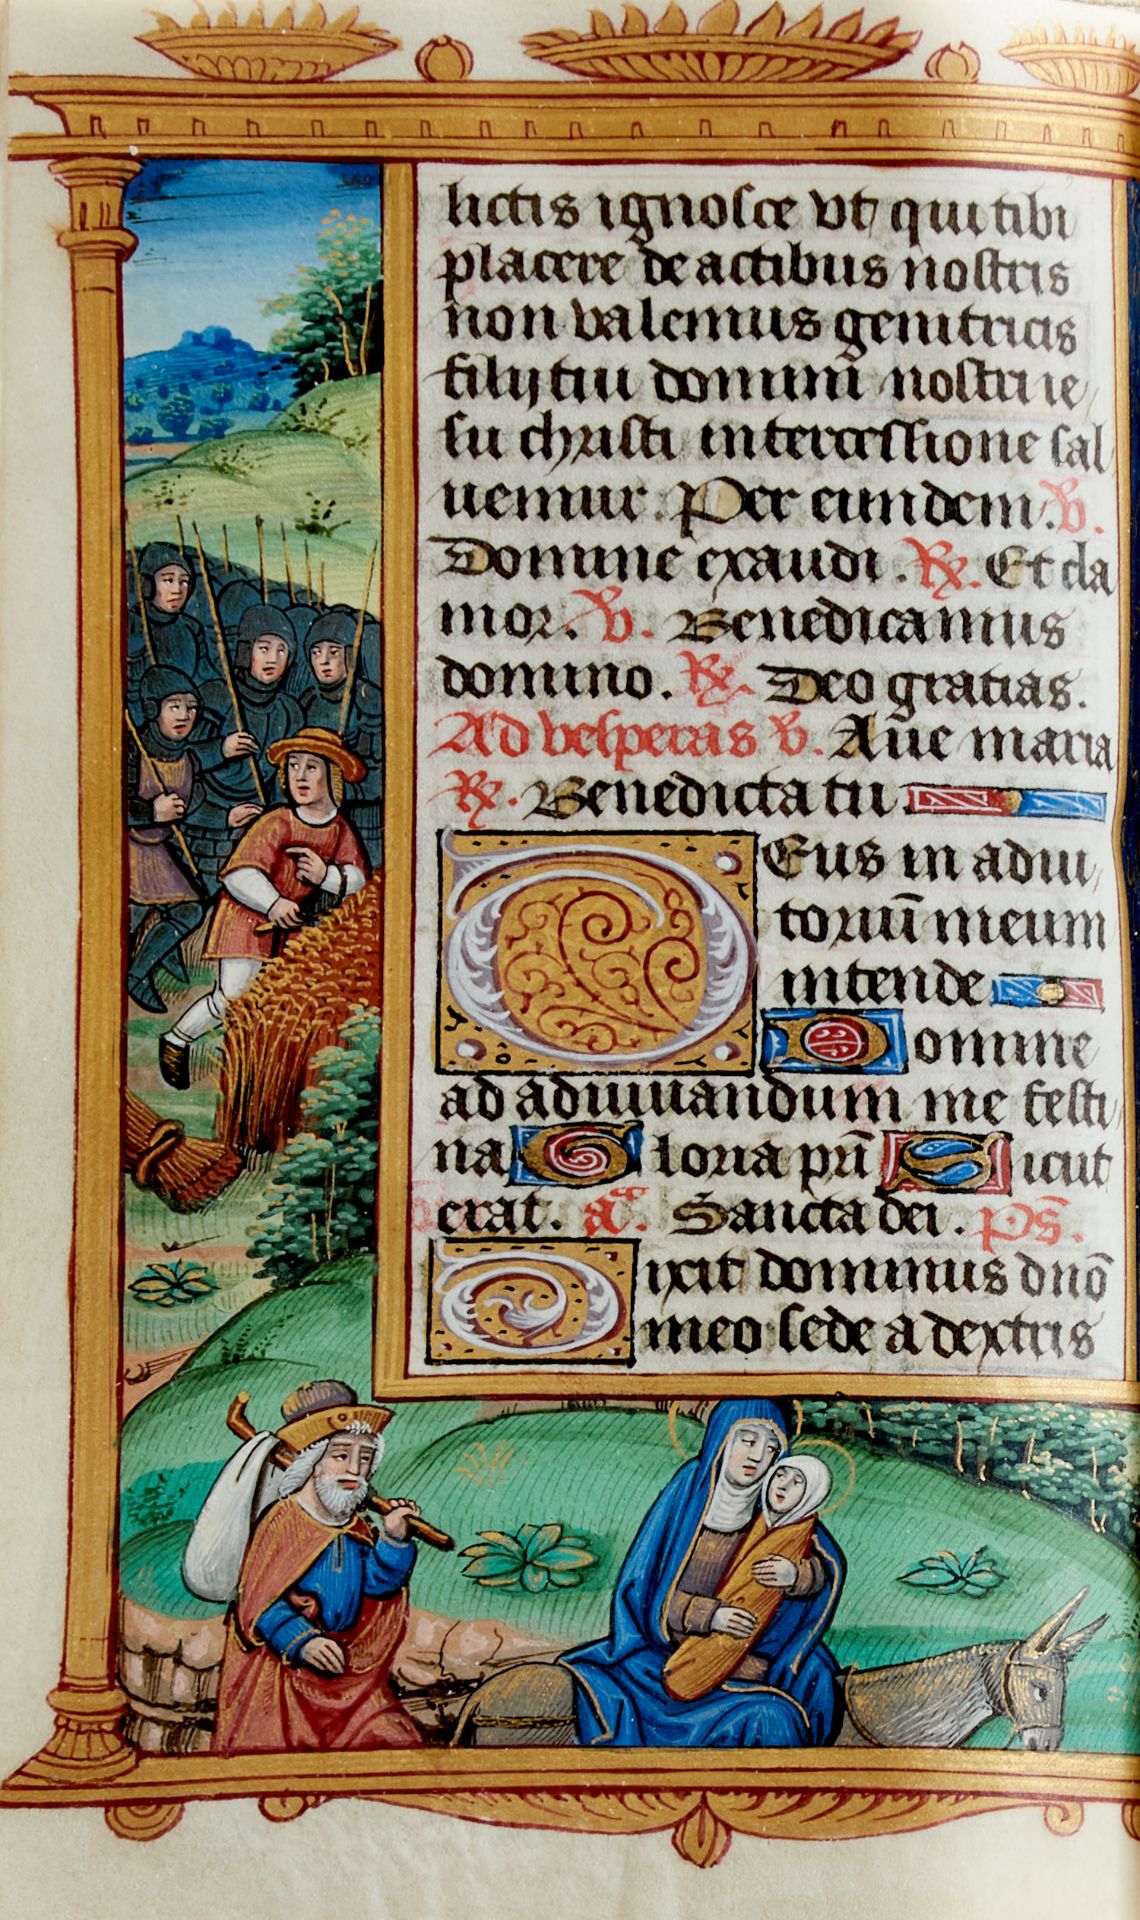 lictis ignosce vt qui tibi
placere de actibus nostris
non valemus genitricis
filij tui domini nostri ie
su christi intercessione sal
uemur. Per eundem. V.
Domine exaudi. R. Et cla
mor. V. Benedicamus
domino. R. Deo gratias.
Ad vesperas V. Aue maria
R. Benedicta tu
DEus in adiu
toriū meum
intende
Domine
ad adiuuandum me festi
na Gloria pr̄i Sicut
erat. añ. Sancta dei. ps̄.
Dixit dominus dn̄o
meo sede a dextris